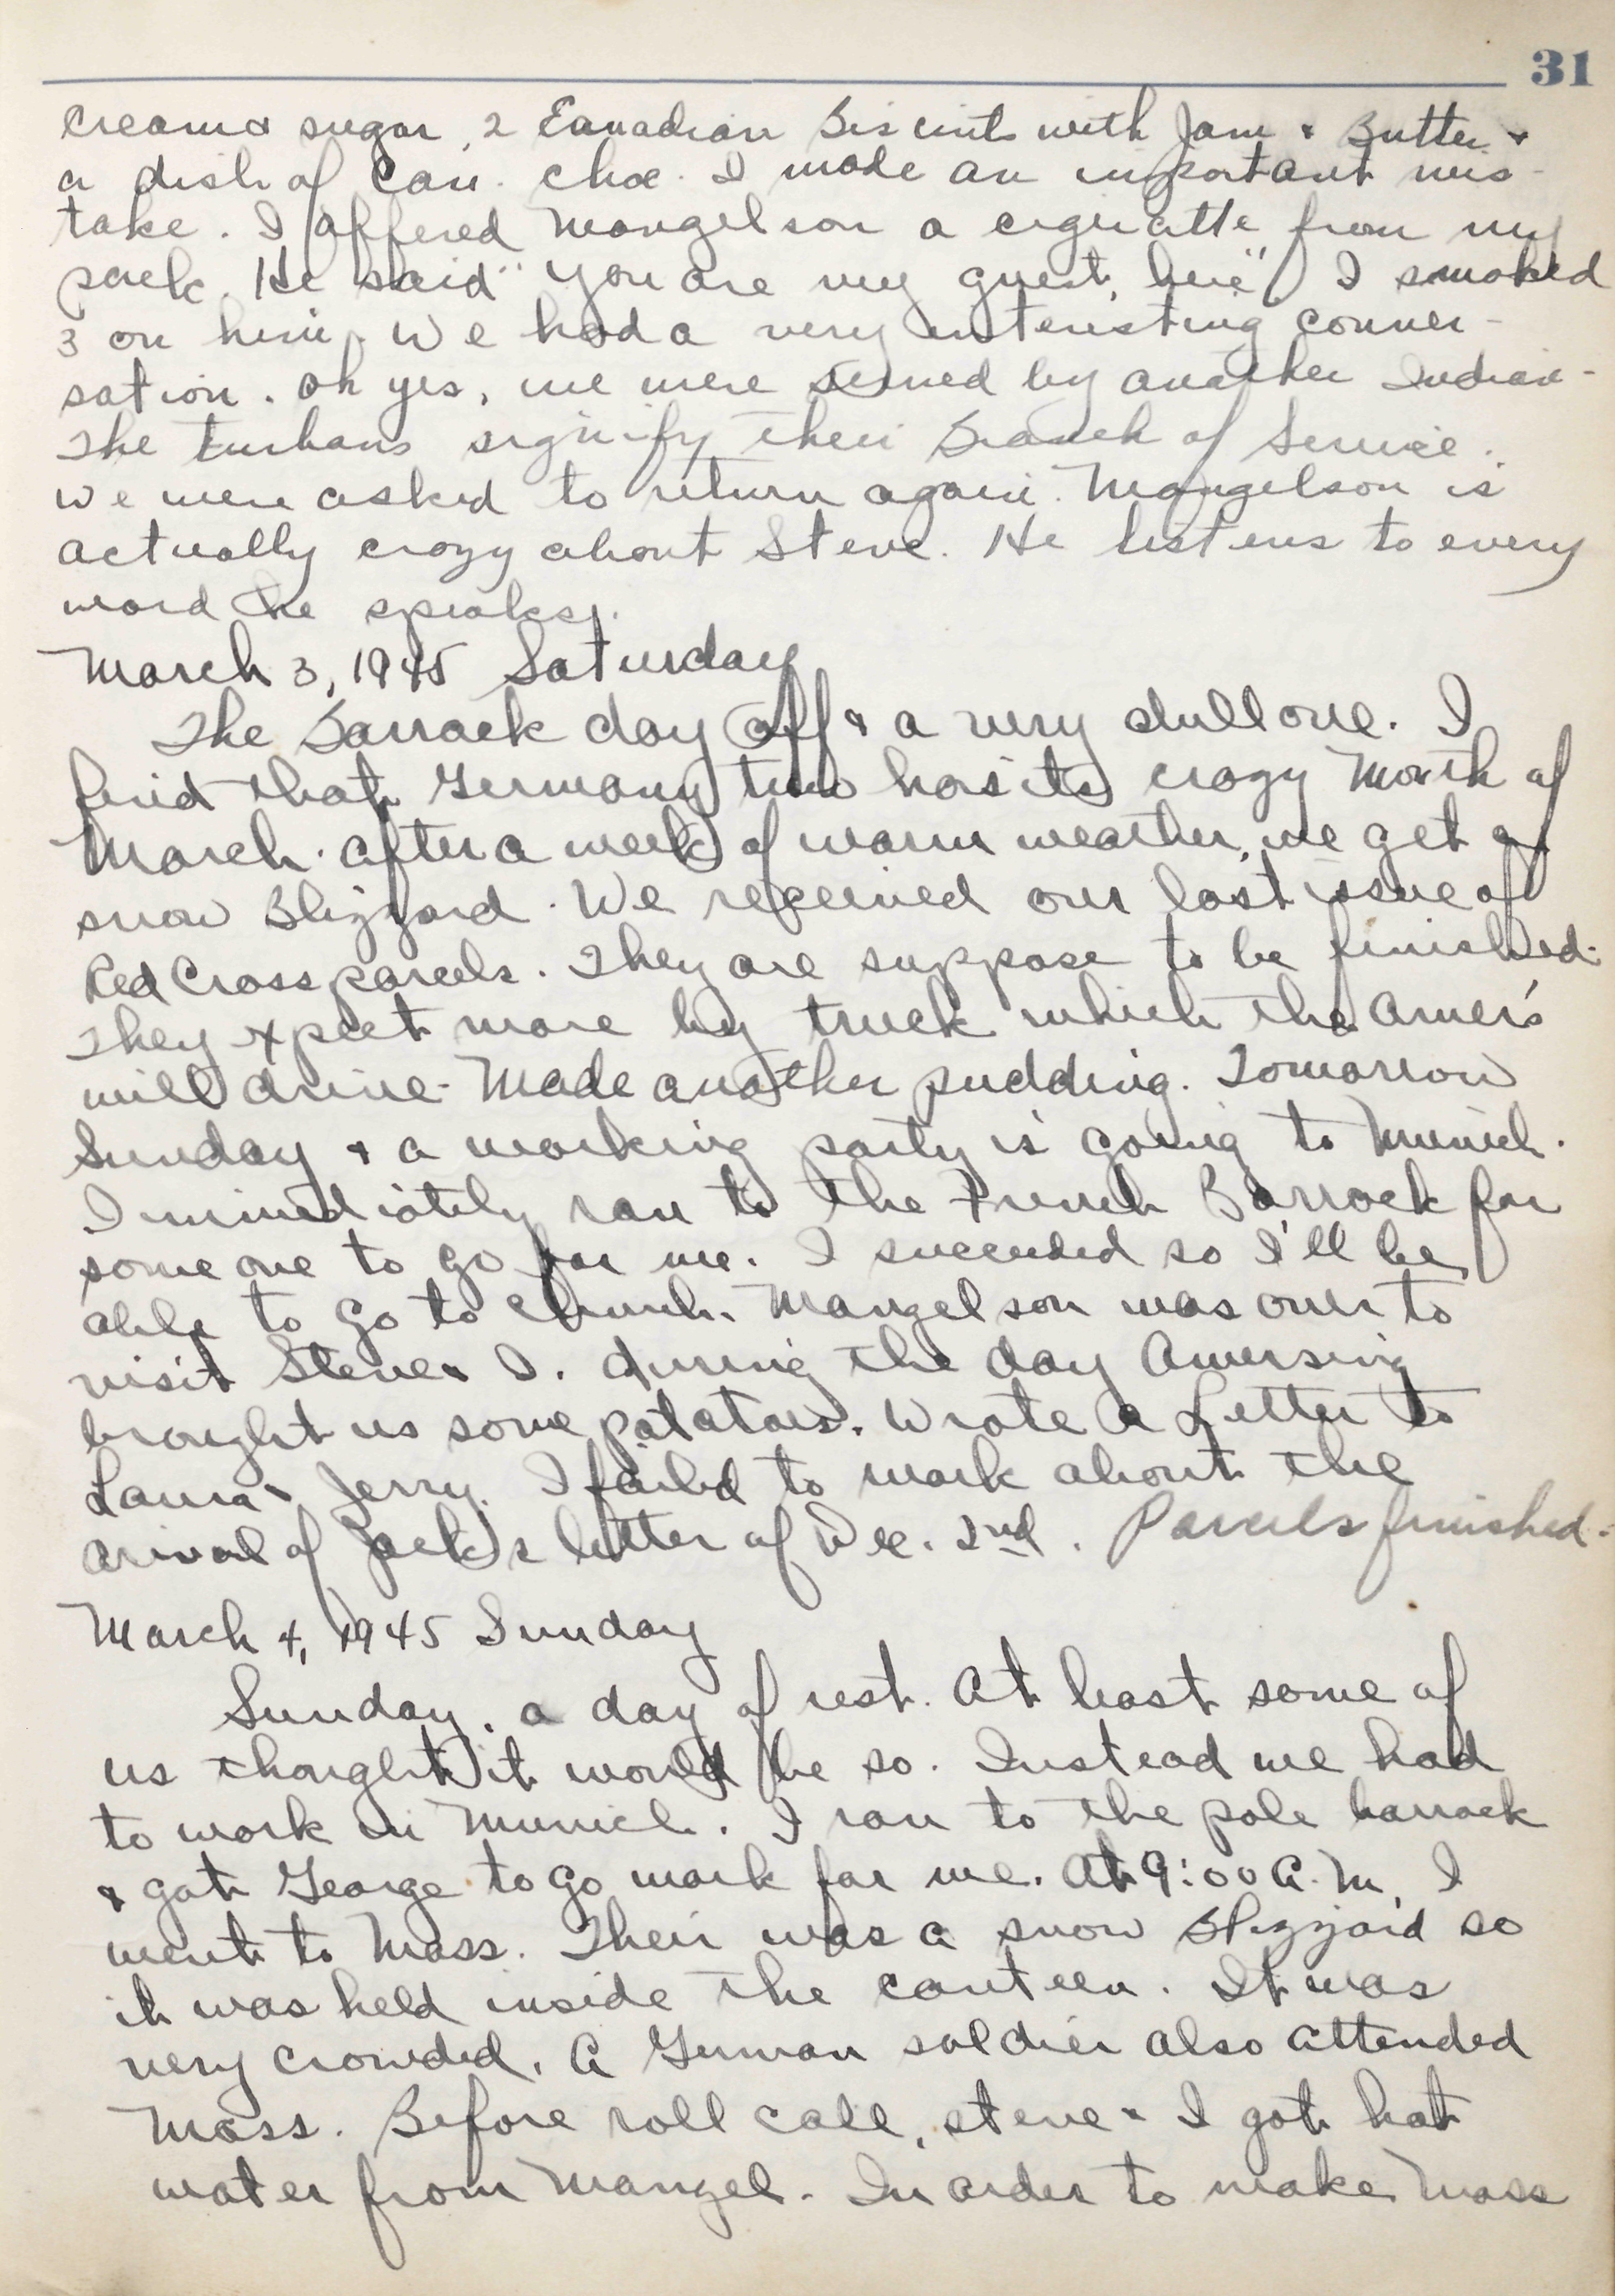 31
cream & sugar, 2 Canadian Biscuits with Jam & Butter &
a dish of Can. choc. I made an important mis-
take. I offered Mangelson a ciguratte from my
pack. He said "you are my guest, here". I smoked
3 on him. We had a very interesting conver-
sation. Oh yes, we were served by another Indian-
The turbans signify their Branch of Service.
We were asked to return again. Mangelson is
actually crazy about Steve. He listens to every
word he speaks.
March 3, 1945 Saturday
The Barrack day off & a very dull one. I
find that Germany too has its crazy Month of
March. After a week of warm weather, we get a
snow Blizzard. We received our last issue of
Red Cross parcels. They are suppose to be finished.
They expect more by truck which the Amer's
will drive. Made another pudding. Tomorrow
Sunday & a working party is going to Munich.
I immediately ran to the French Barrack for
some one to go for me. I succeeded so I'll be
able to go to church. Mangelson was over to
visit Steve & I. During the day Amersing
brought us some potatoes. Wrote a Letter to
Laura & Jerry. I failed to mark about the
arival of Jack's letter of Dec. 2nd. Parcels finished.
March 4, 1945 Sunday
Sunday, a day of rest. At least some of
us thought it would be so. Instead we had
to work in Munich. I ran to the pole barrack
& got George to go work for me. At 9:00 A.M, I
went to Mass. Their was a snow Blizzard so
it was held inside the canteen. It was
very crowded. A German soldier also attended
Mass. Before roll call, Steve & I got hot
water from Mangel. In order to make Mass